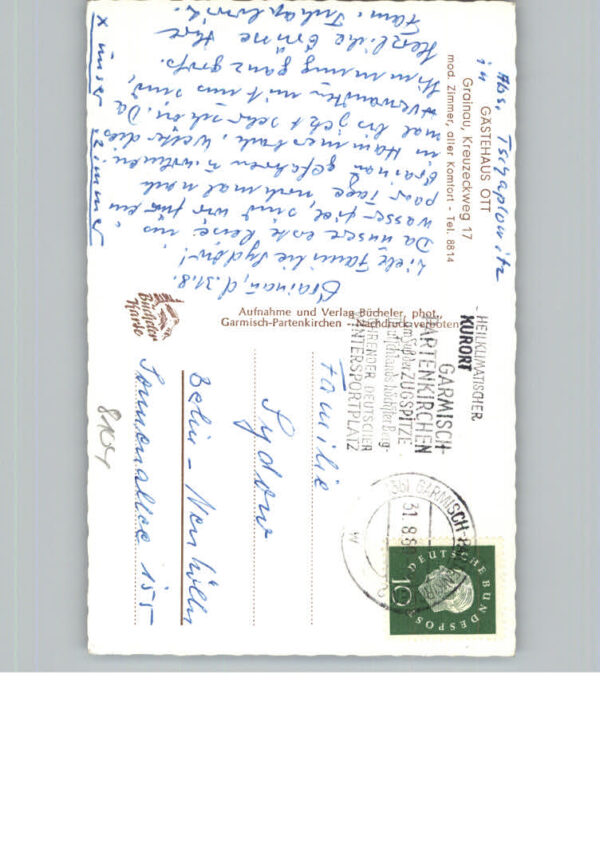 Abs. Tschaplowitz
in
GÄSTEHAUS OTT
Grainau, Kreuzeckweg 17
mod. Zimmer, aller Komfort - Tel. 8814
Grainau, d. 31.8.
Liebe Familie Sydow!
Da unsere erste Reise ins
wasser fiel, sind wir für ein
paar Tage nochmal nach
Grainau gefahren u. wohnen
in Hammersbach. Wetter dies-
mal bis jetzt sehr schön. Da
Verwandten mit uns sind,
Stimmung ganz groß.
Herzliche Grüße Ihre
Fam. Tschaplowitz
x unser Zimmer
Bücheler
Karte
Aufnahme und Verlag Bücheler, phot.,
Garmisch-Partenkirchen - Nachdruck verboten
- HEILKLIMATISCHER
KURORT
GARMISCH-
PARTENKIRCHEN
am Fuße der ZUGSPITZE
Deutschlands höchster Berg
FÜHRENDER DEUTSCHER
WINTERSPORTPLATZ
GARMISCH-PA
31.8.
DEUTSCHE BUNDESPOST
10
Familie
Sydow
Berlin - Neukölln
Sonnenallee 155